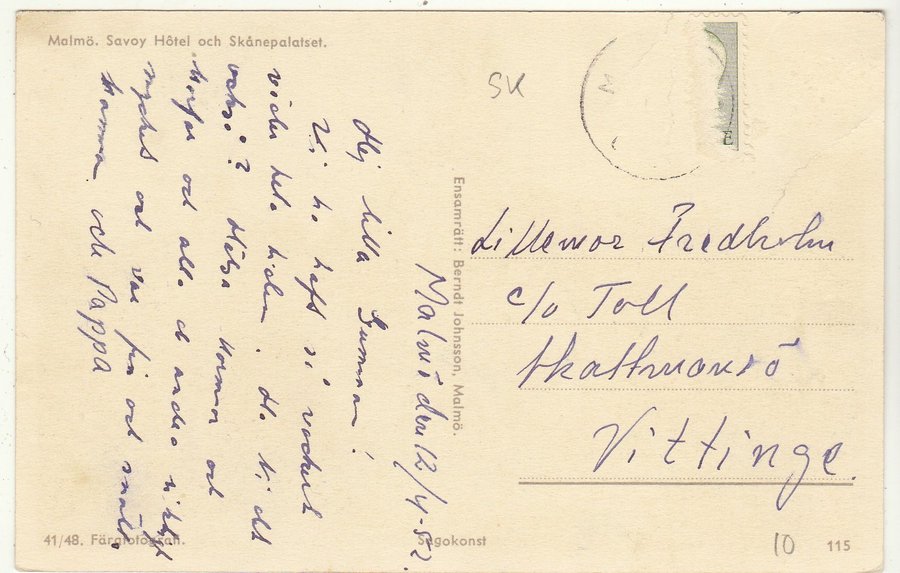 Malmö. Savoy Hôtel och Skånepalatset.
SK
M
E
Malmö den 12/4-52
Hej lilla Gumman!
Vi ha haft så vackert
väder hela tiden. Ha Ni det
också? Hälsa Mormor och
Morfar och alla de andra så
mycket och var fin och snäll.
Mamma och Pappa
Ensamrätt: Berndt Johnsson, Malmö.
Lillemor Fredholm
c/o Toll
Skattmansö
Vittinge
41/48. Färgfotografi.
Sagokonst
10
115